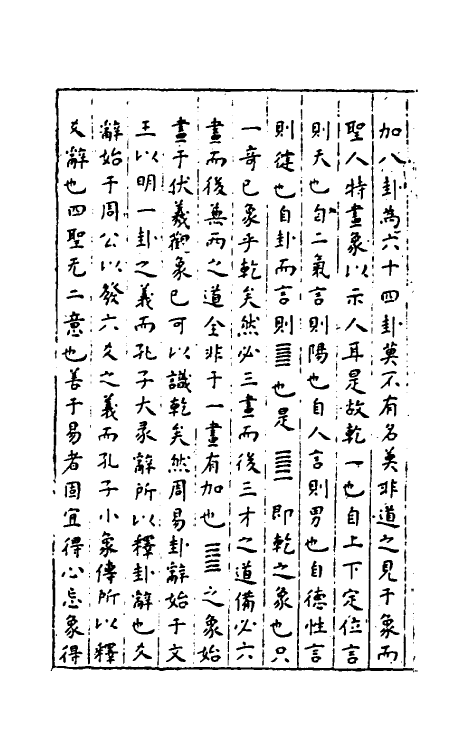 加八卦為六十四卦莫不有名美非道之見于象而
聖人特畫象以示人耳是故乾一也自上下定位言
則天也自二氣言則陽也自人言則男也自德性言
則健也自卦而言則☰也是☰即乾之象也只
一奇已象乎乾矣然必三畫而後三才之道備必六
畫而後兼兩之道全非于一畫有加也☰之象始
畫于伏羲觀象已可以識乾矣然周易卦辭始于文
王以明一卦之義而孔子大彖辭所以釋卦辭也爻
辭始于周公以發六爻之義而孔子小象傳所以釋
爻辭也四聖无二意也善于易者固宜得心忘象得